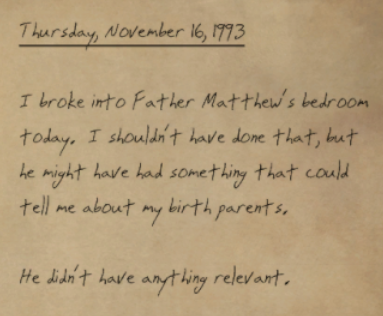 Thursday, November 16, 1993
I broke into Father Matthew's bedroom
today. I shouldn't have done that, but
he might have had something that could
tell me about my birth parents.
He didn't have anything relevant.